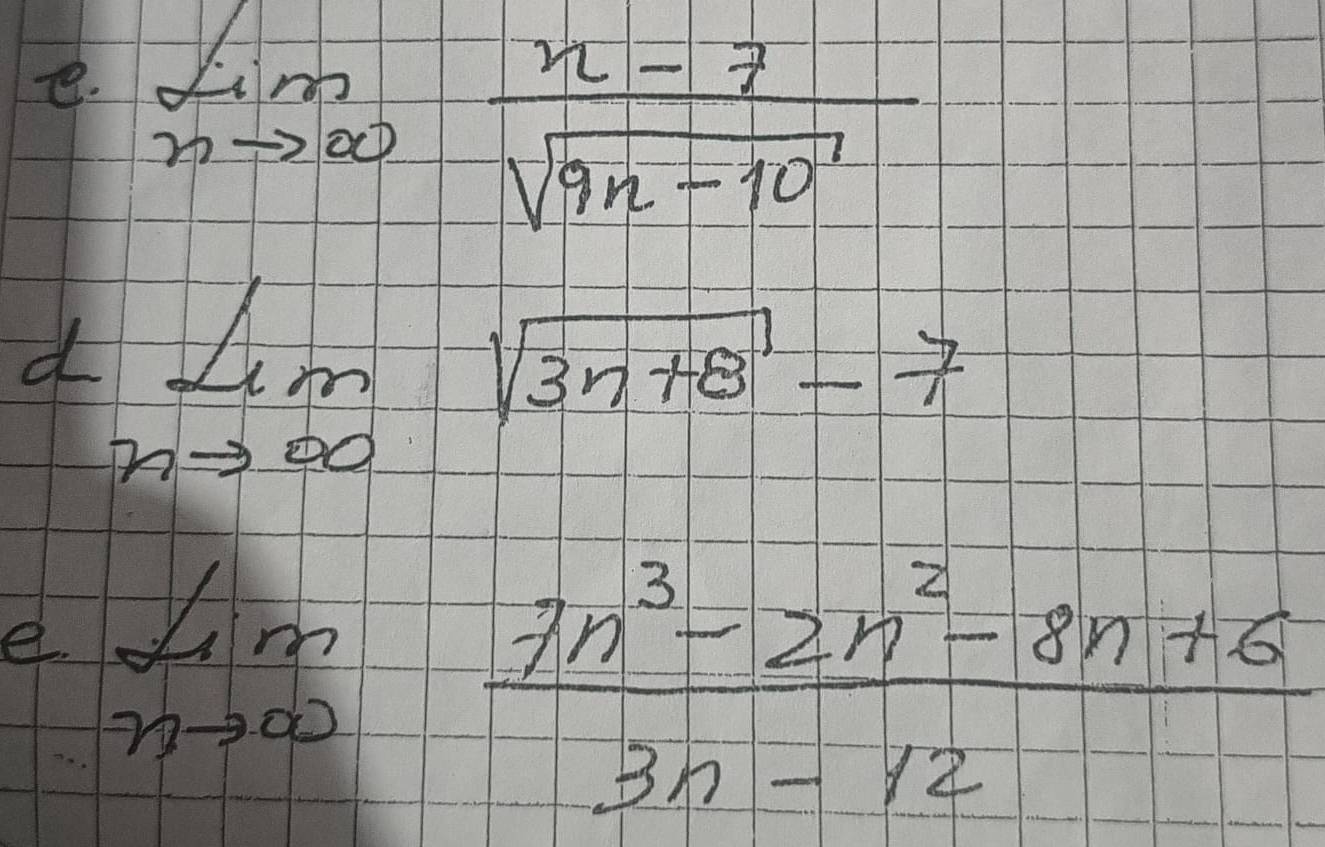 e. Lim n - 7
n → ∞ √(9n - 10)
d Lim √(3n + 8) - 7
n → ∞
e. Lim 7n³ - 2n² - 8n + 6
n → ∞ 3n - 12